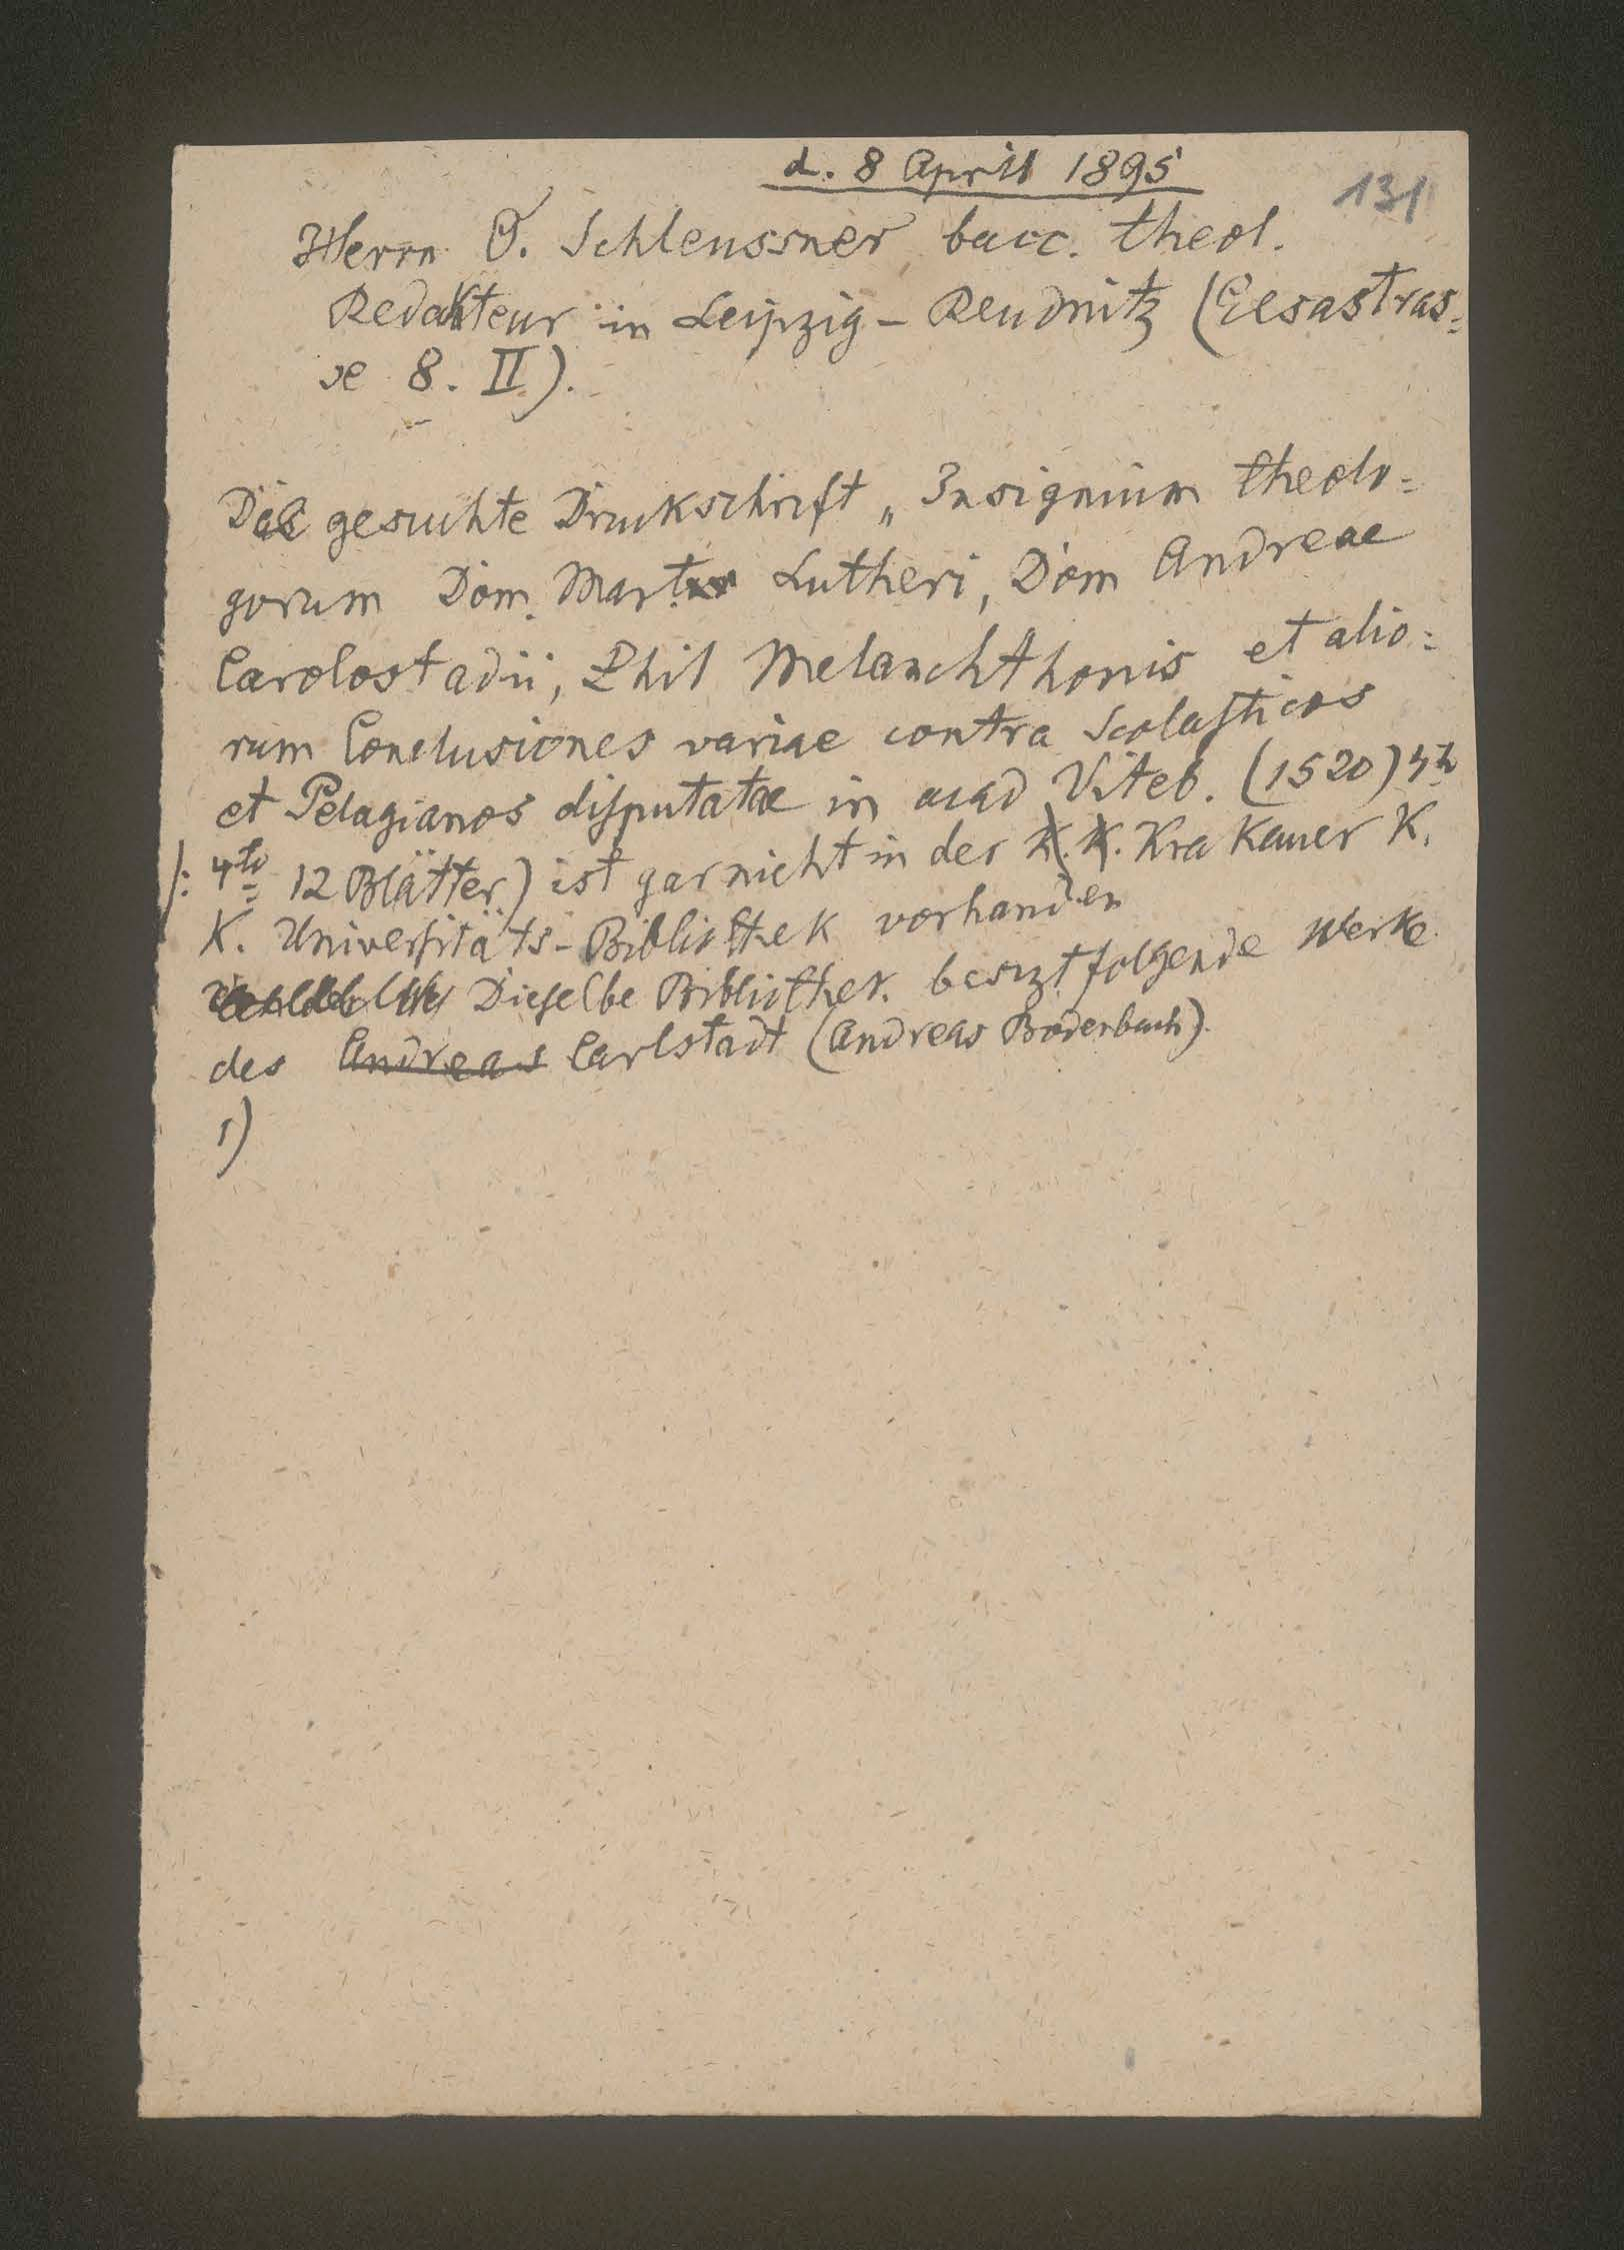 d. 8 April 1895
131
Herrn O. Schleussner bacc. theol.
Redakteur in Leipzig - Reudnitz (Elsastras=
se 8. II).
Die gesuchte Druckschrift „Insignium theolo=
gorum Dom. Mart. Lutheri, Dom Andreae
Carolostadii, Phil Melanchthonis et alio=
rum Conclusiones variae contra Scolasticos
et Pelagianos disputatae in acad Viteb. (1520) 4to
/: 4to 12 Blätter) ist gar nicht in der K. K. Krakauer K.
K. Universitäts-Bibliothek vorhanden
Dieselbe Bibliothek. besizt folgende Werke
des Andreas Carlstadt (Andreas Bodenbach).
1)